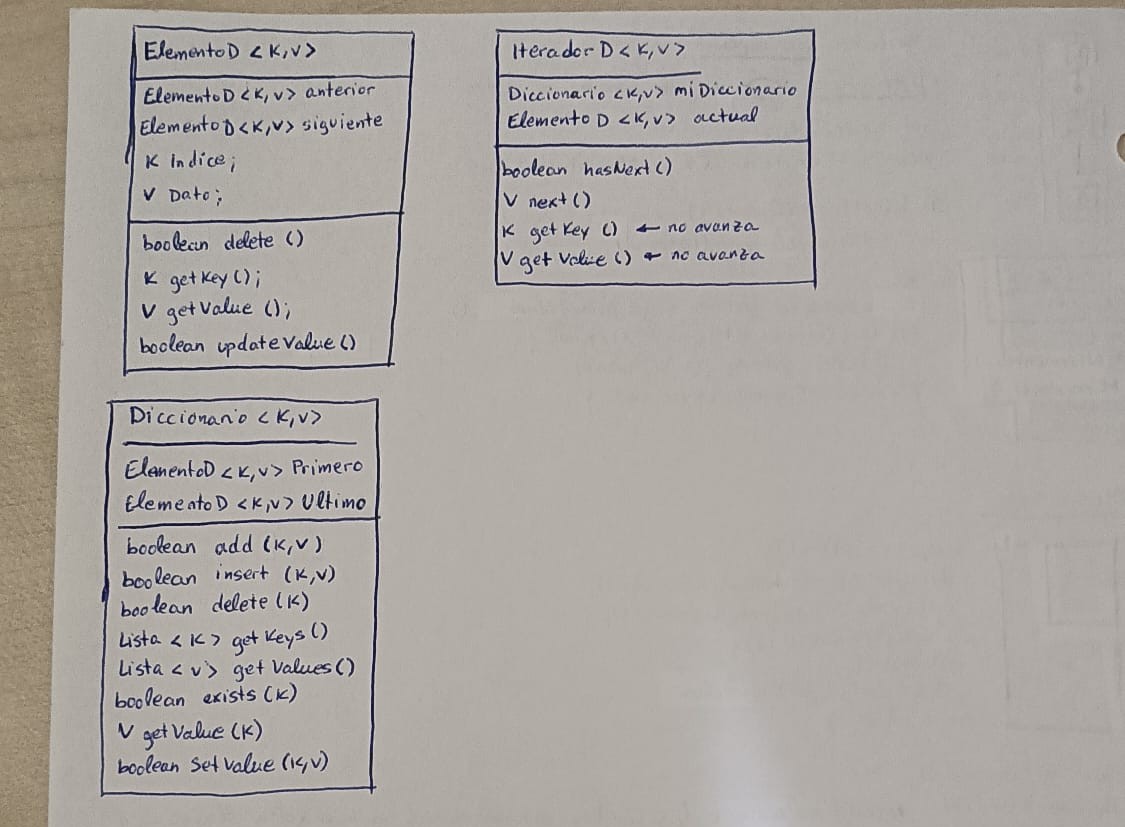 ElementoD <K,V>
ElementoD <K,V> anterior
ElementoD <K,V> siguiente
K Indice;
V Dato;
boolean delete ()
K getKey ();
V getValue ();
boolean updateValue ()
Iterador D <K,V>
Diccionario <K,V> miDiccionario
Elemento D <K,V> actual
boolean hasNext ()
V next ()
K getKey () ← no avanza
V getValue () ← no avanza
Diccionario <K,V>
ElementoD <K,V> Primero
ElementoD <K,V> Ultimo
boolean add (K,V)
boolean insert (K,V)
boolean delete (K)
Lista <K> getKeys ()
Lista <V> getValues ()
boolean exists (K)
V getValue (K)
boolean SetValue (K,V)